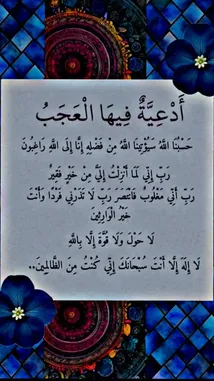 أَدْعِيَّةٌ فِيهَا الْعَجَبُ
حَسْبُنَا اللَّهُ سَيُؤْتِينَا اللَّهُ مِنْ فَضْلِهِ إِنَّا إِلَى اللَّهِ رَاغِبُونَ
رَبِّ إِنِّي لَمَا أَنْزَلْتَ إِلَيَّ مِنْ خَيْرٍ فَقِيرٌ
رَبِّ أَنِّي مَغْلُوبٌ فَانْتَصَرَ رَبِّ لَا تَذَرْنِي فَرْدًا وَأَنْتَ
خَيْرُ الْوَارِثِينَ
لَا حَوْلَ وَلَا قُوَّةَ إِلَّا بِاللَّهِ
لَا إِلَهَ إِلَّا أَنْتَ سُبْحَانَكَ إِنِّي كُنْتُ مِنَ الظَّالِمِينَ..